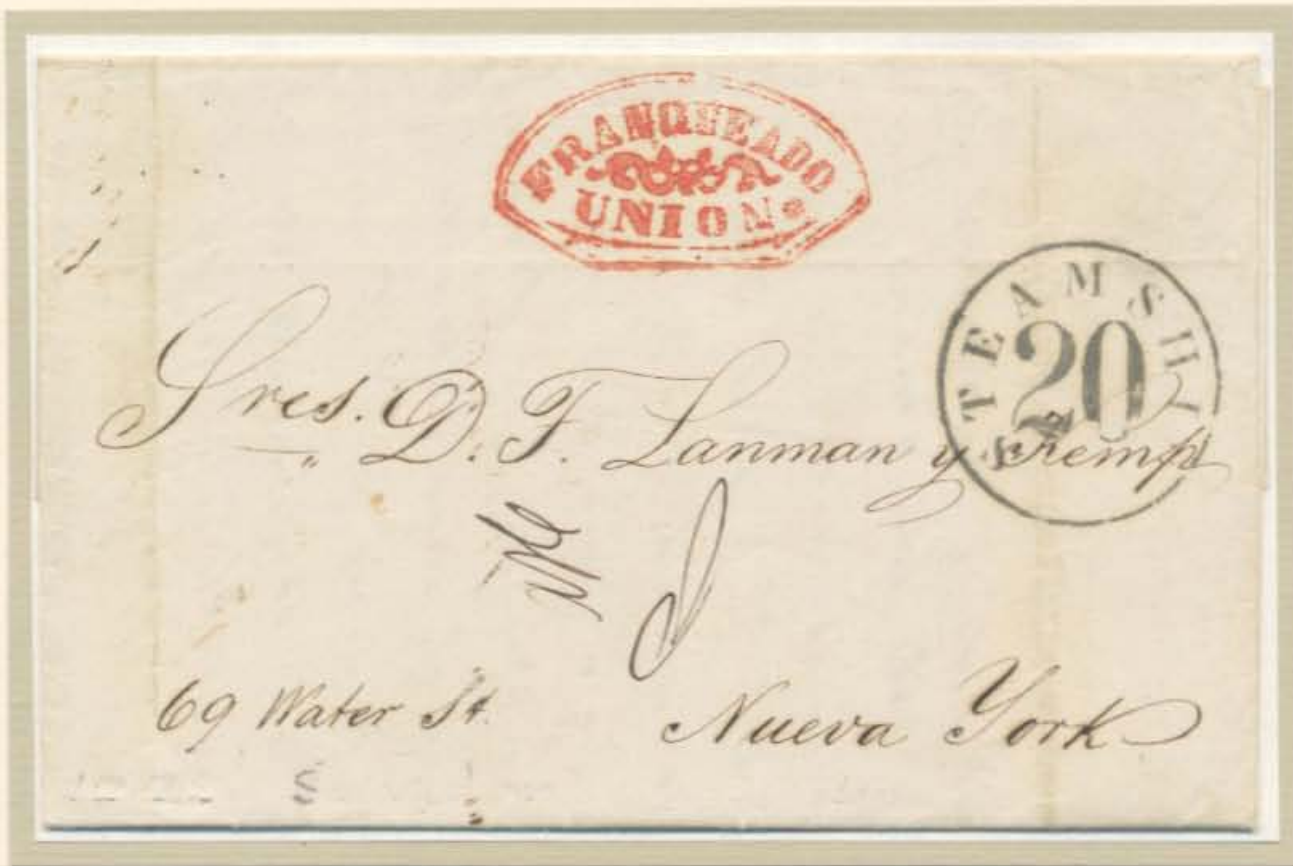 FRANQUEADO
UNION.
STEAMSHIP
20
Sres. D. F. Lanman y Kemp
69 Water St.
Nueva York